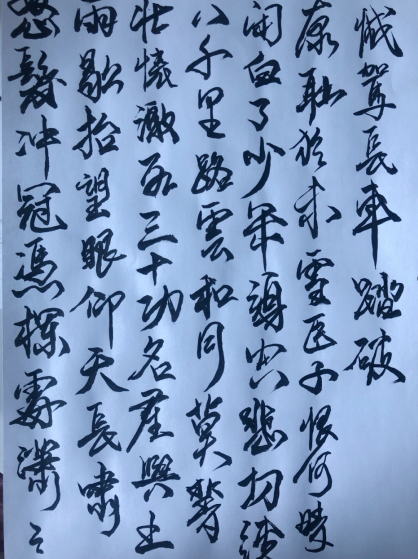 怒髮冲冠憑欄處瀟〻
雨歇抬望眼仰天長嘯
壮懷激烈三十功名塵與土
八千里路雲和月莫等
閑白了少年頭空悲切靖
康耻猶未雪臣子恨何時
滅駕長車踏破